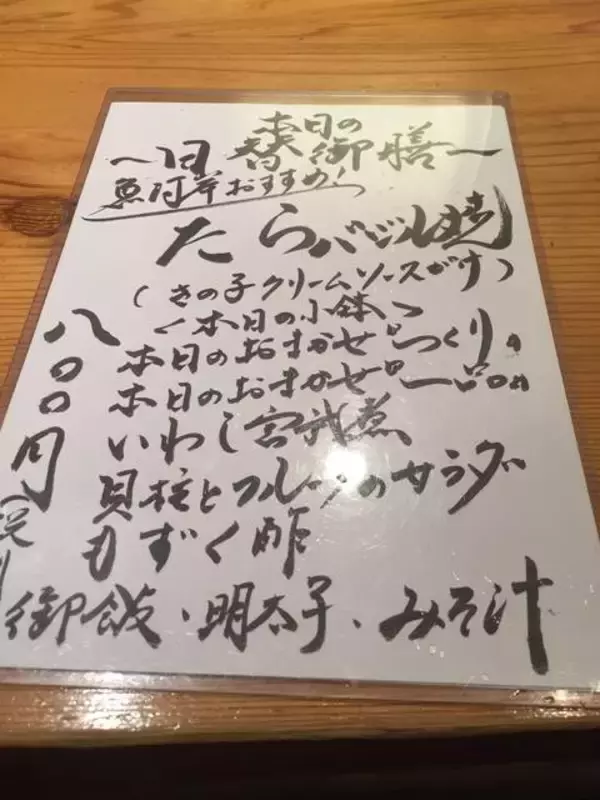 本日の
〜日替御膳〜
おすすめ!
たらバジル焼
(きの子クリームソースがけ)
<本日の小鉢>
本日のおまかせ"つくり"
本日のおまかせ"一品"
いわし宮武煮
貝柱とフルーツのサラダ
もずく酢
御飯・明太子・みそ汁
八〇〇円
(税